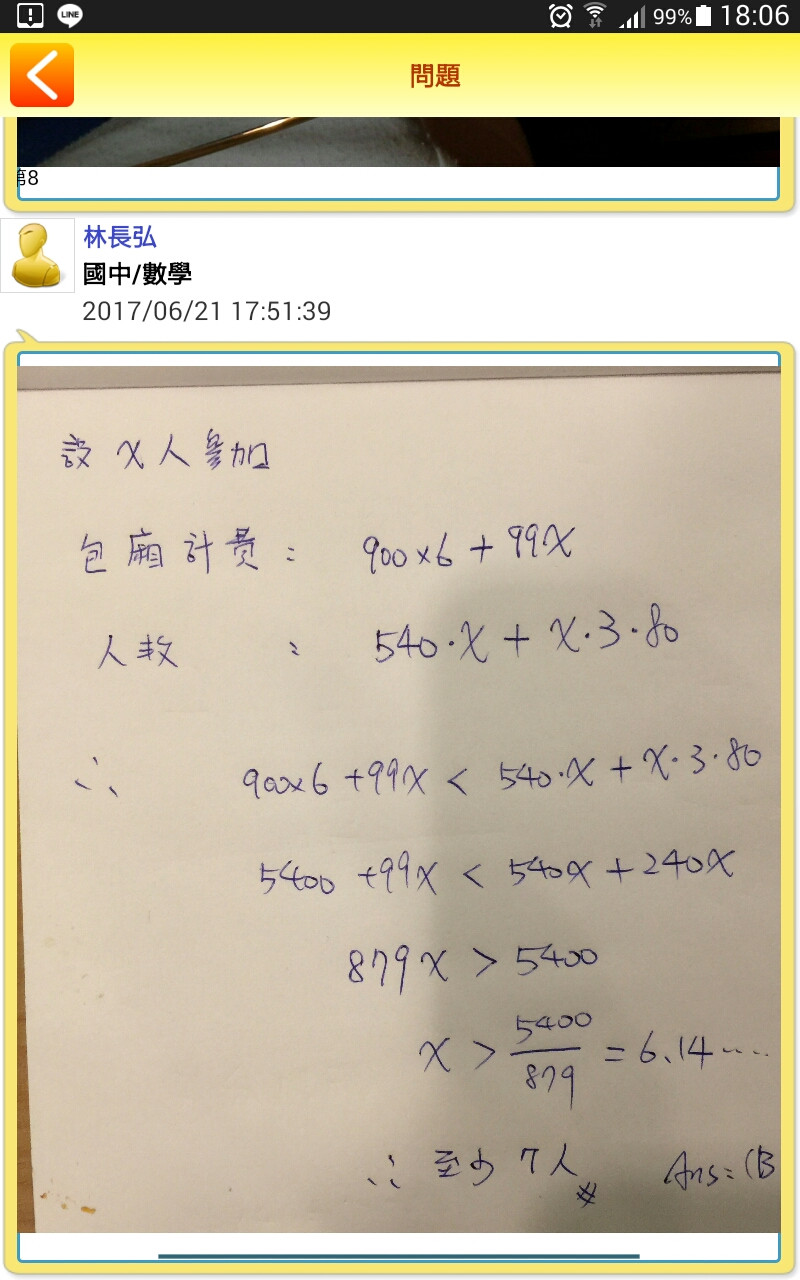 LINE 99% 18:06
問題
第8
林長弘
國中/數學
2017/06/21 17:51:39
設 x 人參加
包廂計費: 900×6 + 99x
人数 : 540·x + x·3·80
∴ 900×6 + 99x < 540·x + x·3·80
5400 + 99x < 540x + 240x
879x > 5400
x > 5400/879 = 6.14……
∴ 至少 7人 # Ans=(B